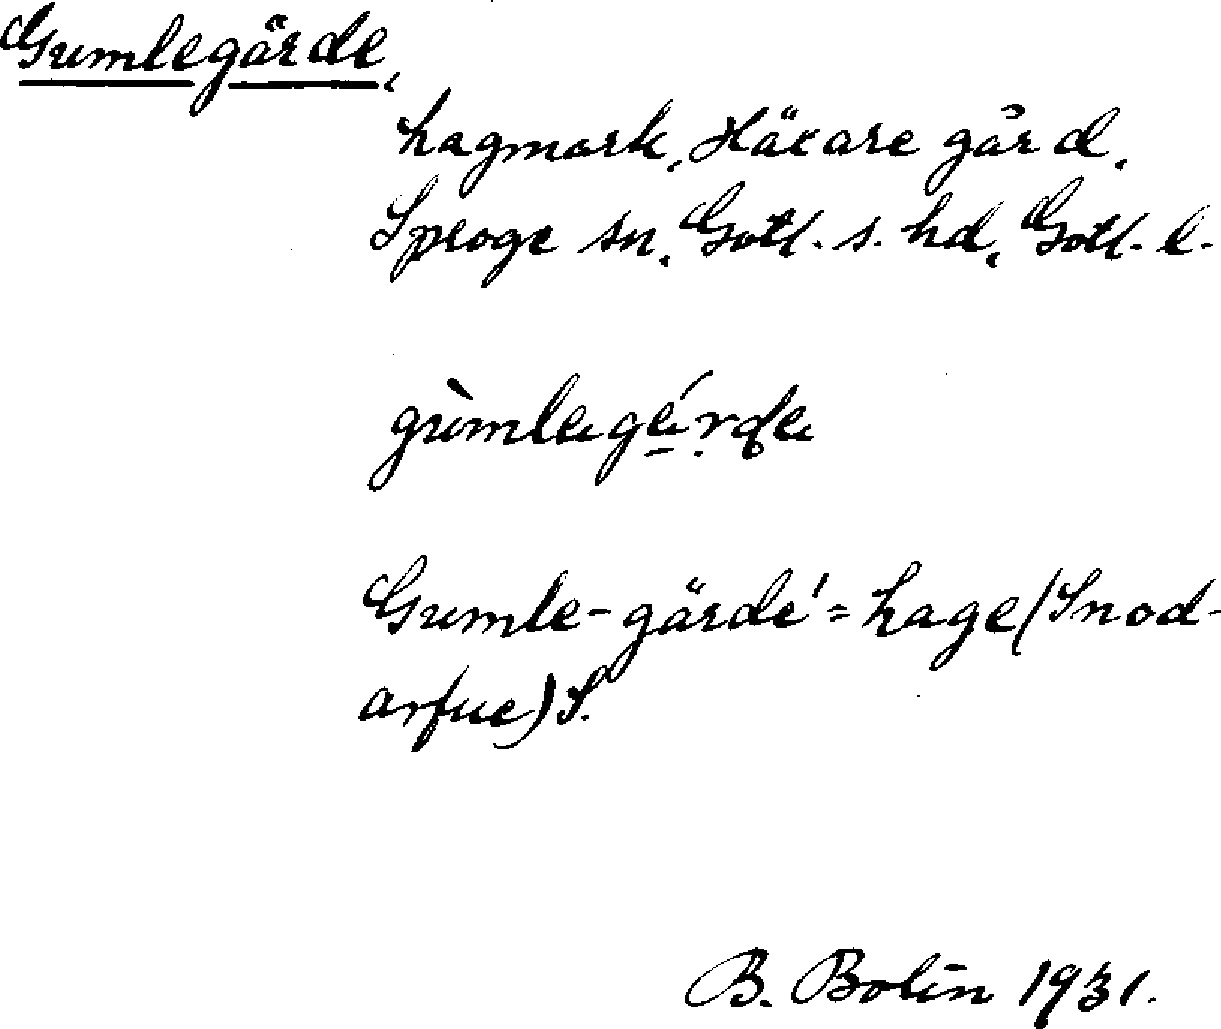 Gumlegärde,
hagmark, Häcare gård,
Sproge sn, Gotl. s. hd, Gotl. l.
gùmlegé̱rde
Gumle-gärde' = hage (Snod-
arfue) S.
B. Bolin 1931.